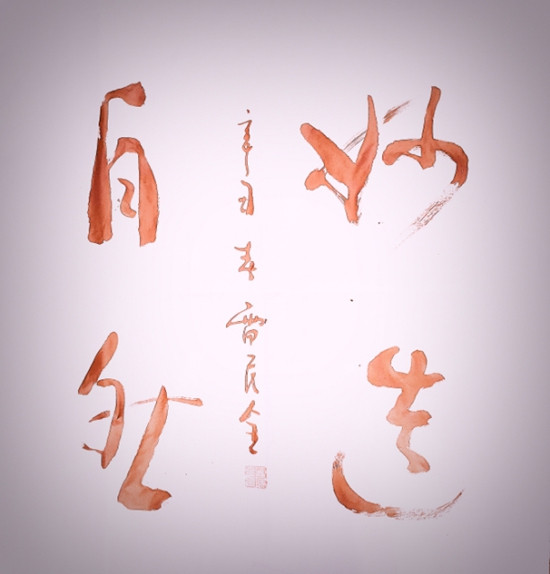 妙造
自然
辛丑春民全